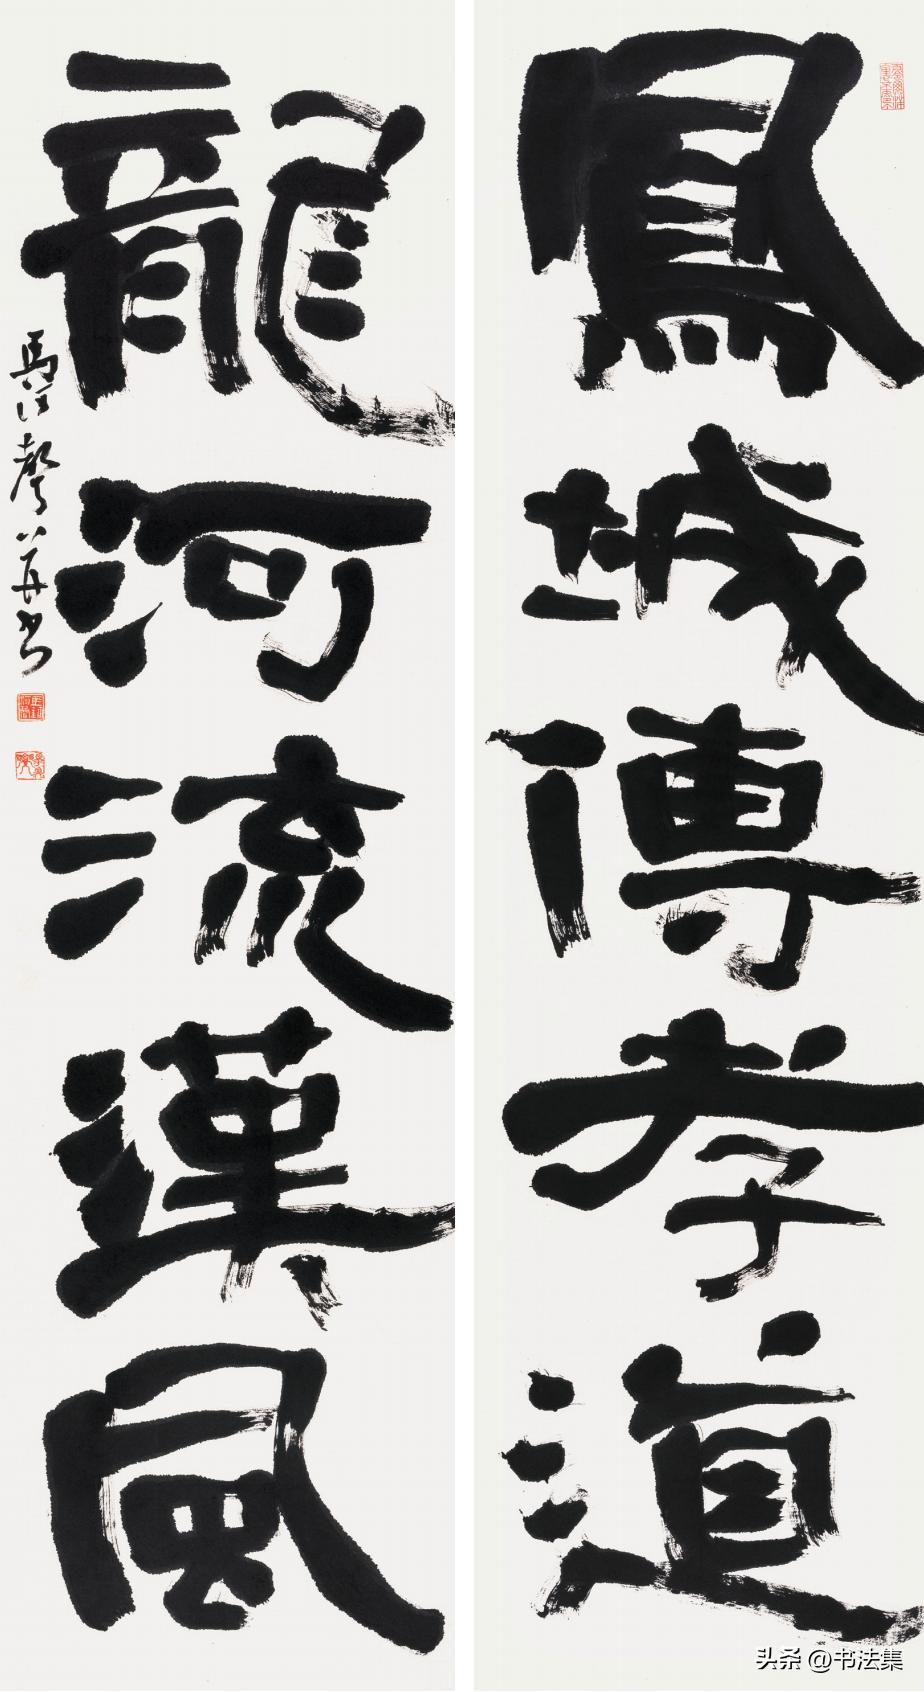 鳳城傳孝道
龍河流漢風
头条 @书法集